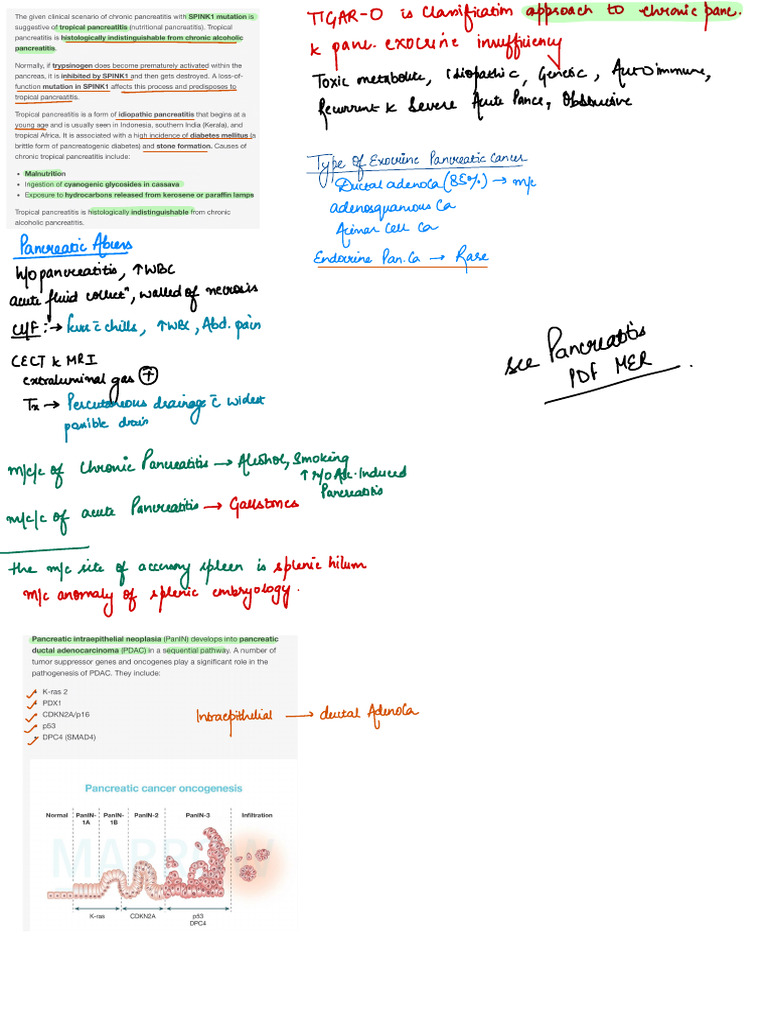 The given clinical scenario of chronic pancreatitis with SPINK1 mutation is
suggestive of tropical pancreatitis (nutritional pancreatitis). Tropical
pancreatitis is histologically indistinguishable from chronic alcoholic
pancreatitis.
Normally, if trypsinogen does become prematurely activated within the
pancreas, it is inhibited by SPINK1 and then gets destroyed. A loss-of-
function mutation in SPINK1 affects this process and predisposes to
tropical pancreatitis.
Tropical pancreatitis is a form of idiopathic pancreatitis that begins at a
young age and is usually seen in Indonesia, southern India (Kerala), and
tropical Africa. It is associated with a high incidence of diabetes mellitus (a
brittle form of pancreatogenic diabetes) and stone formation. Causes of
chronic tropical pancreatitis include:
• Malnutrition
• Ingestion of cyanogenic glycosides in cassava
• Exposure to hydrocarbons released from kerosene or paraffin lamps
Tropical pancreatitis is histologically indistinguishable from chronic
alcoholic pancreatitis.
TIGAR-O is classification approach to chronic panc.
k panc. exocrine insufficiency
Toxic metabolite, Idiopathic, Genetic, Autoimmune,
Recurrent k Severe Acute Panc, Obstrusive
Type of Exocrine Pancreatic Cancer
Ductal adenoca (85%) → m/c
adenosquamous Ca
Acinar cell Ca
Endocrine Pan. Ca → Rare
Pancreatic Abcess
h/o pancreatitis, ↑WBC
acute fluid collectn, walled of necrosis
C/F :→ fever c̄ chills, ↑WBC, Abd. pain
CECT k MRI
extraluminal gas +
Tx → Percutaneous drainage c̄ widest
possible drain
see Pancreatitis
PDF MER
m/c/c of Chronic Pancreatitis → Alcohol, Smoking
↑ r/o Alc. Induced
Pancreatitis
m/c/c of acute Pancreatitis → Gallstones
the m/c site of accessory spleen is splenic hilum
m/c anomaly of splenic embryology.
Pancreatic intraepithelial neoplasia (PanIN) develops into pancreatic
ductal adenocarcinoma (PDAC) in a sequential pathway. A number of
tumor suppressor genes and oncogenes play a significant role in the
pathogenesis of PDAC. They include:
K-ras 2
PDX1
CDKN2A/p16
p53
DPC4 (SMAD4)
Intraepithelial → ductal Adenoca
Pancreatic cancer oncogenesis
Normal PanIN-1A PanIN-1B PanIN-2 PanIN-3 Infiltration
MARROW
K-ras CDKN2A p53
DPC4